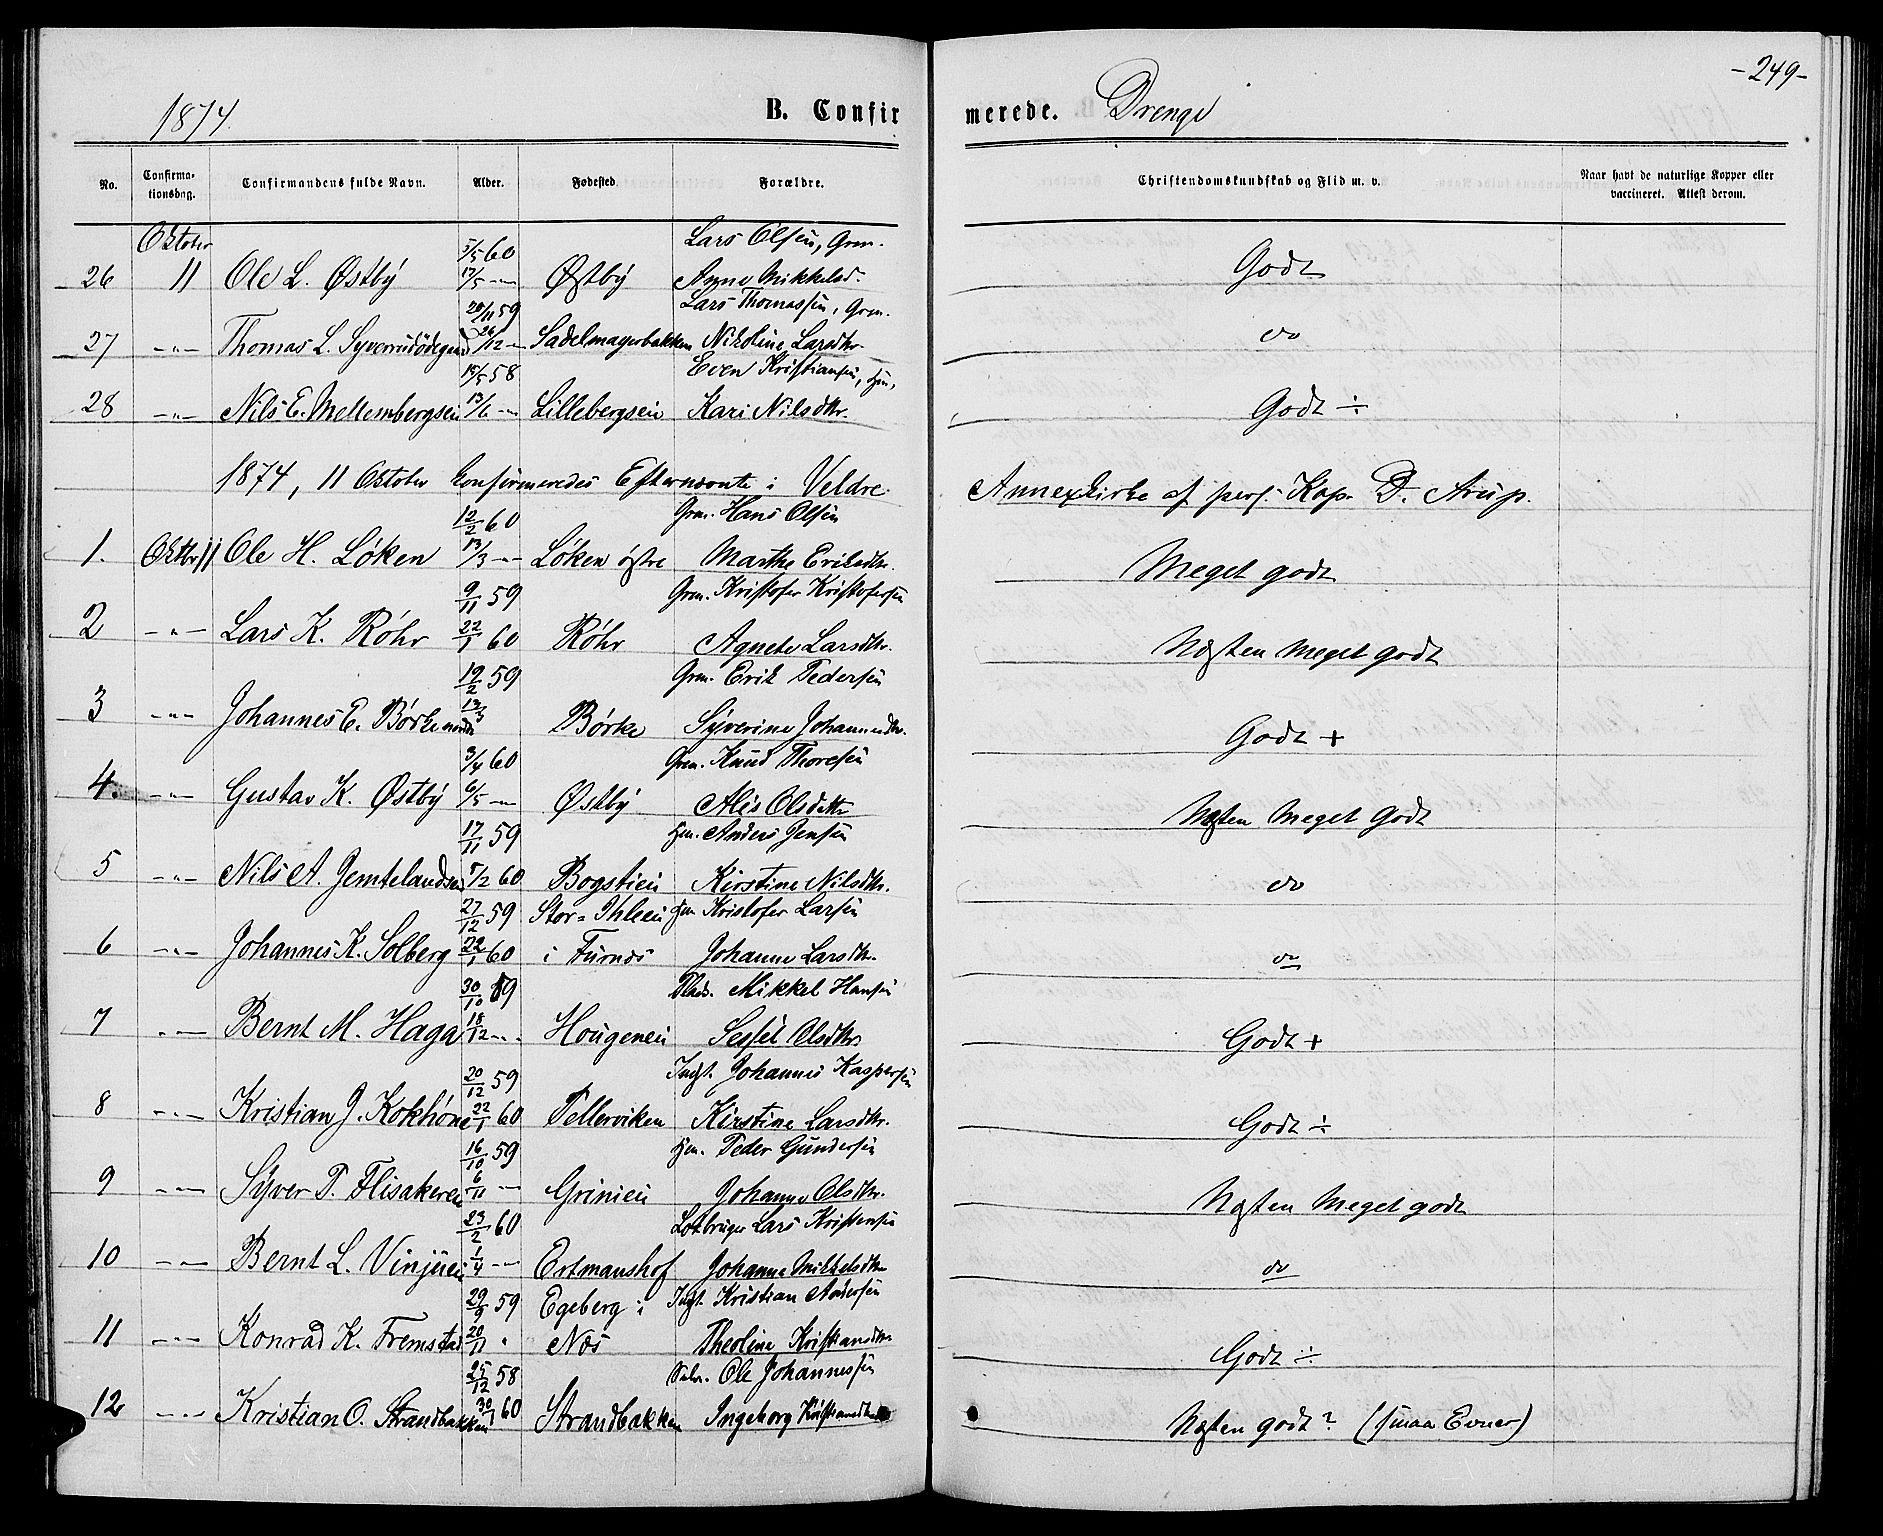 -249-
1874.
B. Confirmerede. Drenge
No. Confirmationsdag. Confirmandens fulde Navn. Alder. Fødested. Forældre. Christendomskundskab og Flid m. v. Naar havt de naturlige Kopper eller vaccineret. Attest derom.
Oktober 5/5 60 Lars Olsen, Grm.
26 11 Ole L. Østby 17/5 -"- Østby Anne Mikkelsd. Godt
20/11 59 Lars Thomassen, Grm.
27 -"- Thomas L. Syverudødegaard 26/12 - Sadelmagerbakken Nikoline Larsdtr. do
18/5 58 Even Kristiansen, Hm,
28 -"- Nils E. Mellembergseie 13/6 -"- Lillebergseie Kari Nilsdtr. Godt ÷
1874, 11 Oktober Confirmeredes Efternævnte i Veldre Annexkirke af pers. Kap. D. Arup.
12/2 60 Grm. Hans Olsen
1. Oktbr 11 Ole H. Löken 13/3 -"- Löken østre Marthe Eriksdtr. Meget godt
9/11 59 Grm. Kristofer Kristofersen
2 -"- Lars K. Röhr 22/1 60 Röhr Agnete Larsdtr. Næsten Meget godt
19/2 59 Grm. Erik Pedersen
3 -"- Johannes E. Börke nordre 19/3 Börke Syverine Johannesdtr. Godt +
3/4 60 Grm. Knud Thoresen
4. -"- Gustav K. Østby 6/5 -"- Østby Alis Olsdatter Næsten Meget Godt
17/11 59 Hm. Anders Jensen
5 -"- Nils A. Jemtelandseie 5/2 60 Bogstieie Kirstine Nilsdtr. do
27/12 59 Stor-Ihleeie Hm Kristofer Larsen
6 -"- Johannes K. Solberg 22/1 60 i Furnæs Johanne Larsdtr. do
30/10 59 Plads. Mikkel Hansen
7 -"- Bernt M. Haga 18/12 -"- Hougeneie Sessel Olsdtr Godt +
20/12 59 Ingst. Johannes Kaspersen
8 -"- Kristian J. Kokhöne 22/1 60 Pellerviken Kirstine Larsdtr. Godt ÷
16/10 59 Hm. Peder Gundersen
9 -"- Syver P. Flisakereie 6/11 -"- Grinieie Johanne Olsdtr. Næsten Meget godt
23/2 60 Lodbruger Lars Kristensen
10 -"- Bernt L. Vinjueie 1/4 -"- Ertmanshof Johanne Mikkelsdtr do
29/9 59 Egeberg i Ingst. Kristian Andersen
11 -"- Konrad K. Fremstad 20/11 " Næs Theoline Kristiansdtr Godt ÷
25/12 58 Ole Johannessen
12 -"- Kristian O. Strandbakken 30/1 60 Strandbakken Ingeborg Kristiansdtr Næsten godt? (smaa Evner)